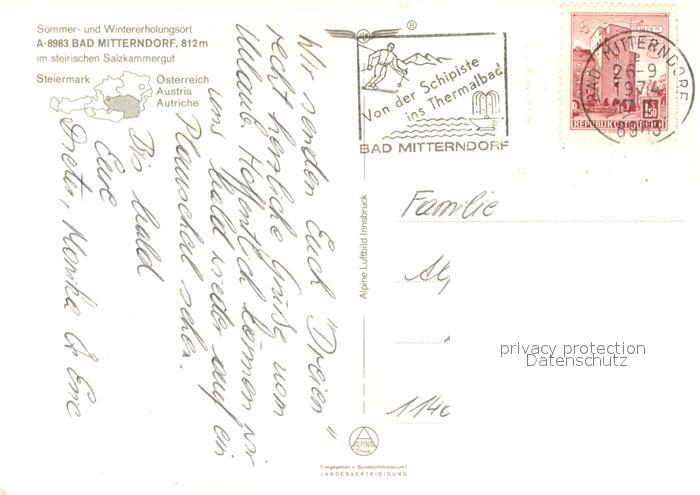 Sommer- und Wintererholungsort
A-8983 BAD MITTERNDORF, 812 m
im steirischen Salzkammergut
Steiermark
Österreich
Austria
Autriche
Wir senden Euch "Dreien"
recht herzliche Grüße vom
Urlaub. Hoffentlich können wir
uns bald wieder auf ein
Plauscherl sehen.
Bis bald
Eure
Dieter, Monika &
Alpine Luftbild Innsbruck
Von der Schipiste
ins Thermalbad
BAD MITTERNDORF
BAD MITTERNDORF
26-9
1974
8983
1.50
REPUBLIK ÖSTERREICH
Familie
1140
privacy protection
Datenschutz
ALPINE
Freigegeben v. Bundesministerium f.
LANDESVERTEIDIGUNG